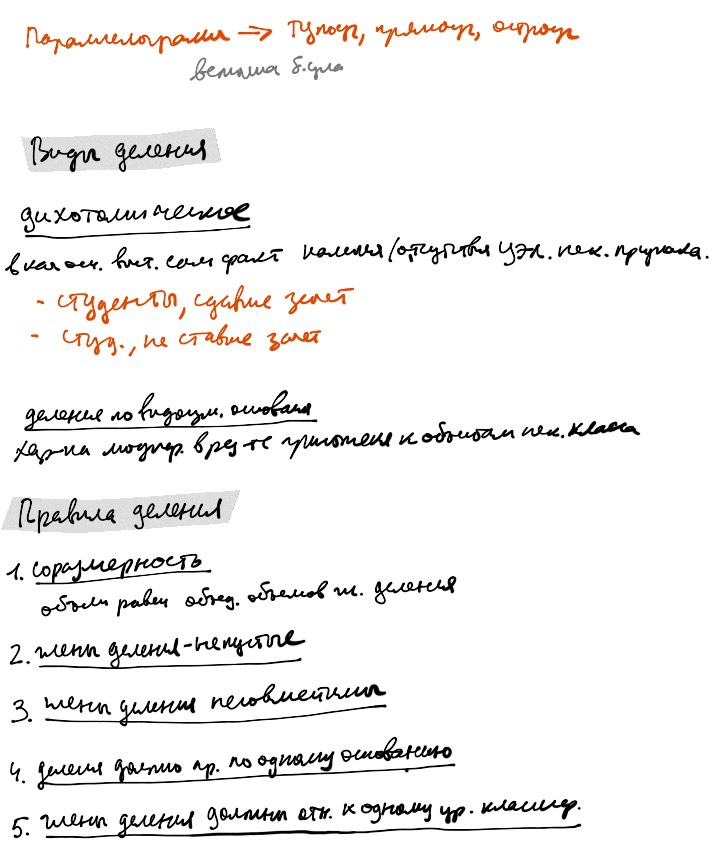 Параллелограмм → тупоуг, прямоуг, остроуг
величина б. угла
Виды деления
дихотомическое
в кач осн. выст. сам факт наличия/отсутствия у эл. нек. признака.
- студенты, сдавшие зачет
- студ., не ставшие зачет
деление по видоизм. основания
хар-ка модифиц. в рез-те приложения к объектам нек. класса
Правила деления
1. соразмерность
объем равен объед. объемов чл. деления
2. члены деления - непустые
3. члены деления несовместимы
4. деление должно пр. по одному основанию
5. члены деления должны отн. к одному ур. классиф.